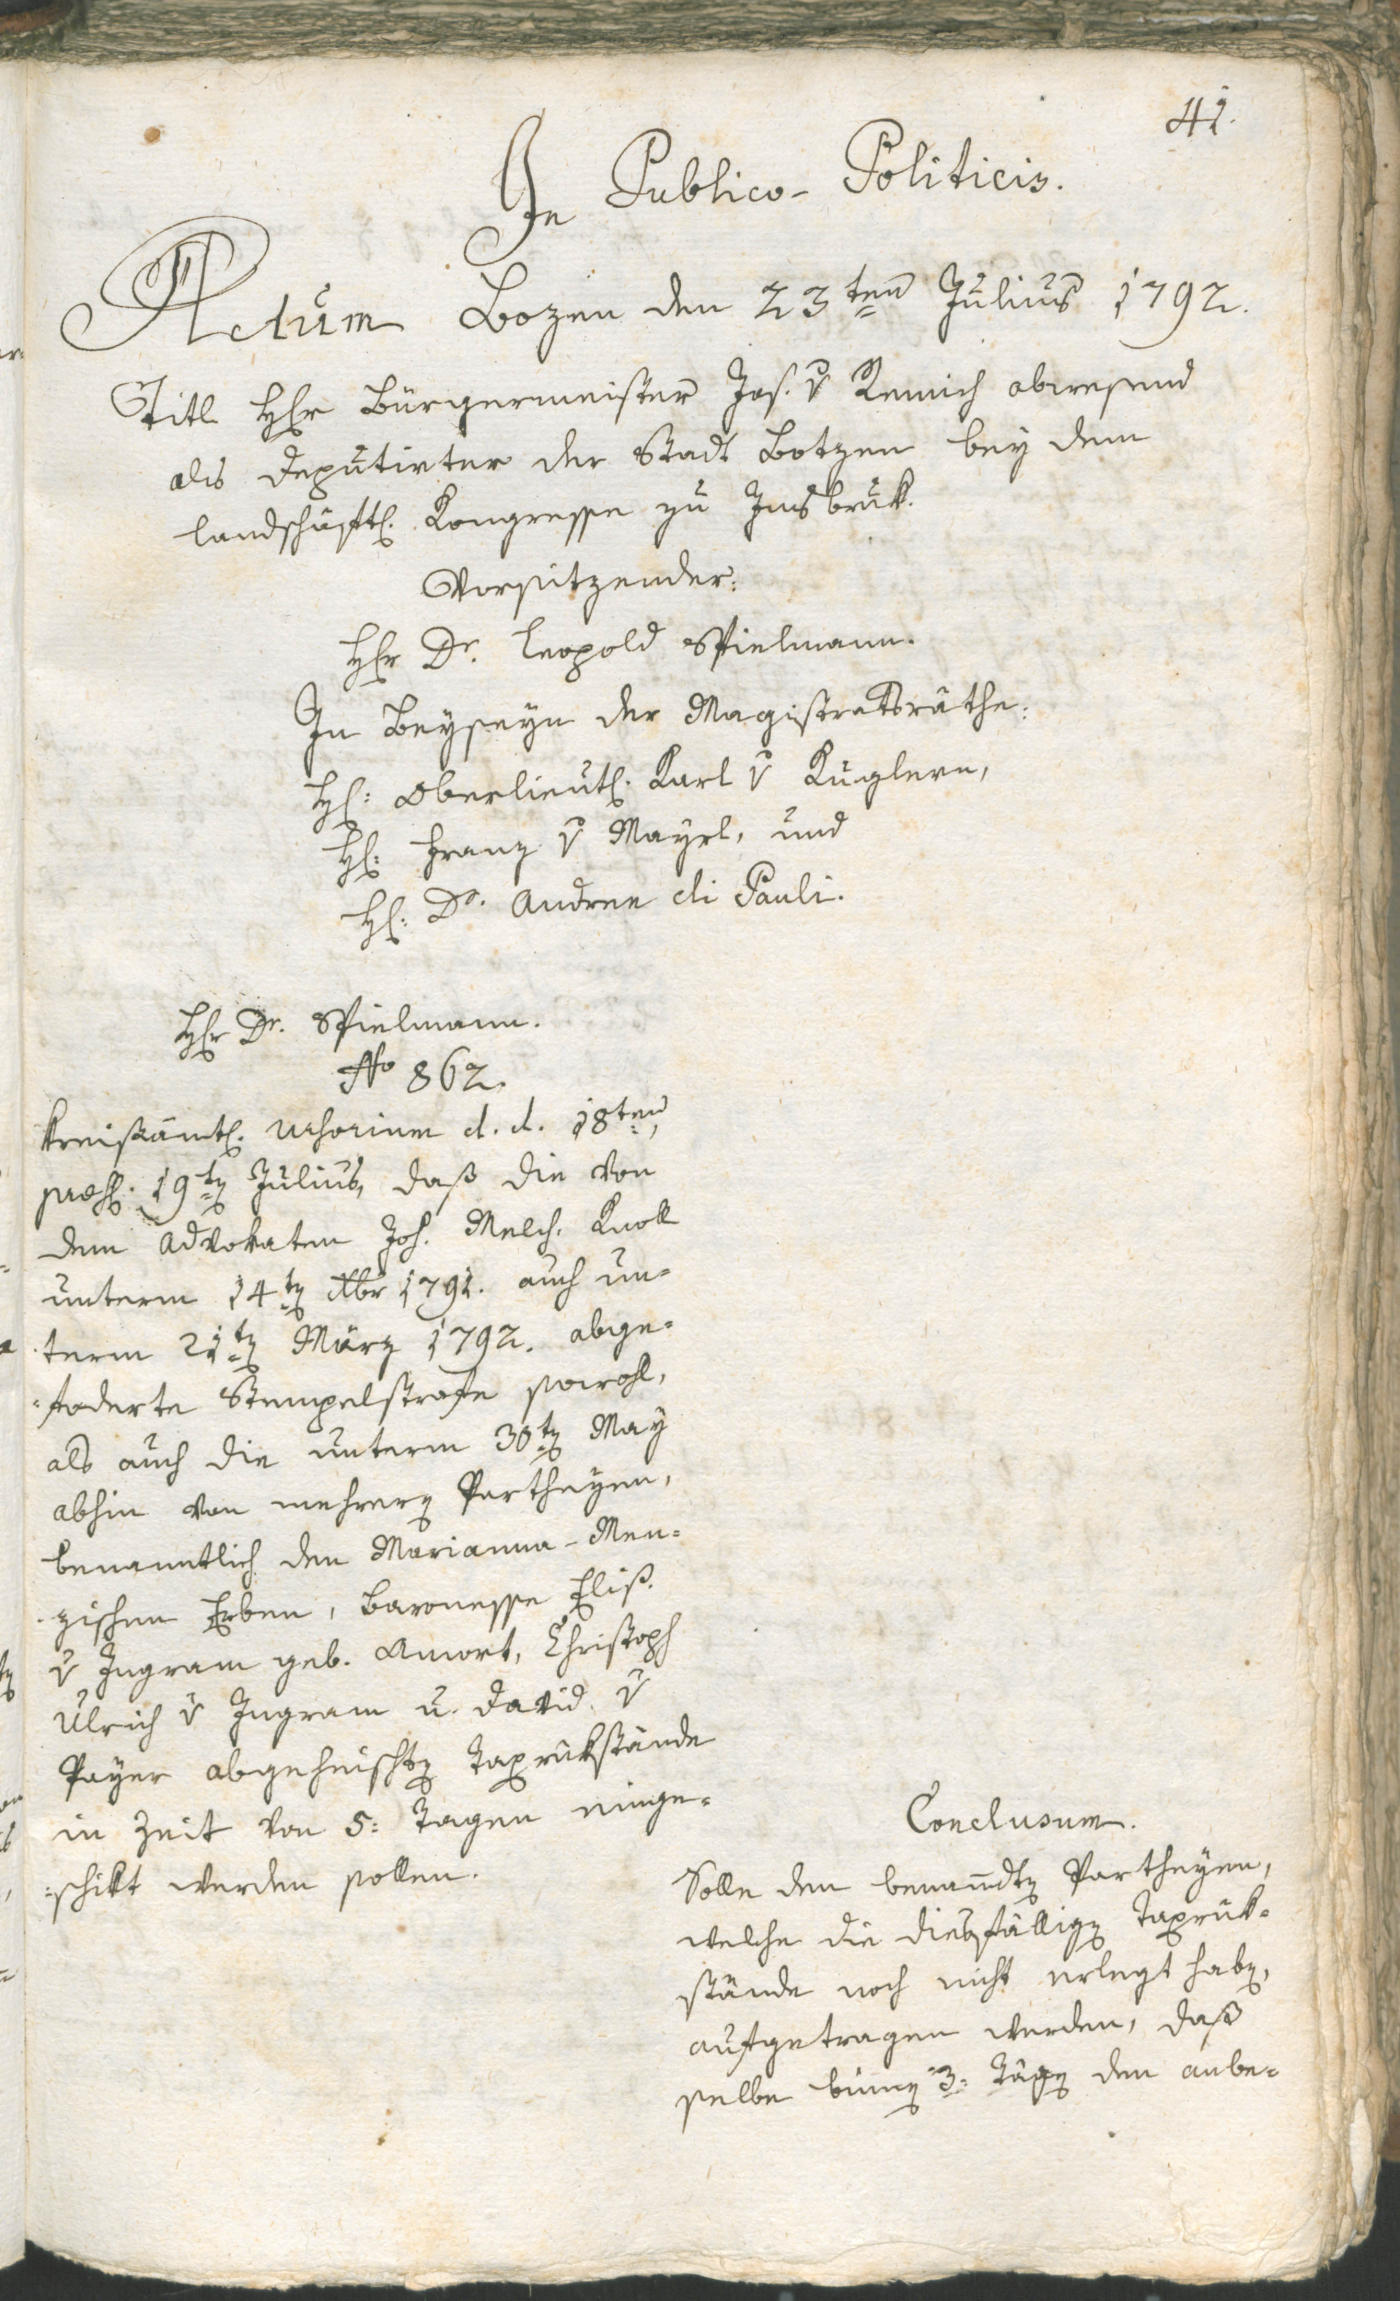 41.
In Publico-Politicis.
Actum Bozen den 23ten Julius 1792.
Titl. Hr Bürgermeister Jos. v Remich abwesend
als Deputirter der Stadt Botzen bey dem
landschäftl. Kongresse zu Insbruk.
Vorsitzender:
Hr Dr. Leopold Spielmann.
In Beyseyn der Magistratsräthe:
H: Oberlieut. Karl v Kuglern,
H: Franz v Mayrl, und
H: Dr. Andree di Pauli.
Hr Dr. Spielmann.
No 862.
Kreisämtl. d. d. 18ten,
praes. 19ten Julius, daß die von
dem Advokaten Joh. Melch. Knoll
unterm 14ten Xbr 1791. auch un-
term 21ten März 1792. abge-
foderte Stempelstrafe sowohl,
als auch die unterm 30ten May
abhin von mehreren Partheyen,
benanntlich den Marianna-Men-
zischen Erben, Baronesse Elis.
v Ingram geb. Amort, Christoph
Ulrich v Ingram u. David v
Payer abgeheischten Taxrükstände
in Zeit von 5: Tagen einge-
schikt werden sollen.
Conclusum.
Solle den benanndten Partheyen,
welche die diesfälligen Taxrük-
stände noch nicht erlegt haben,
aufgetragen werden, daß
selbe binnen 3: Tägen den anbe-